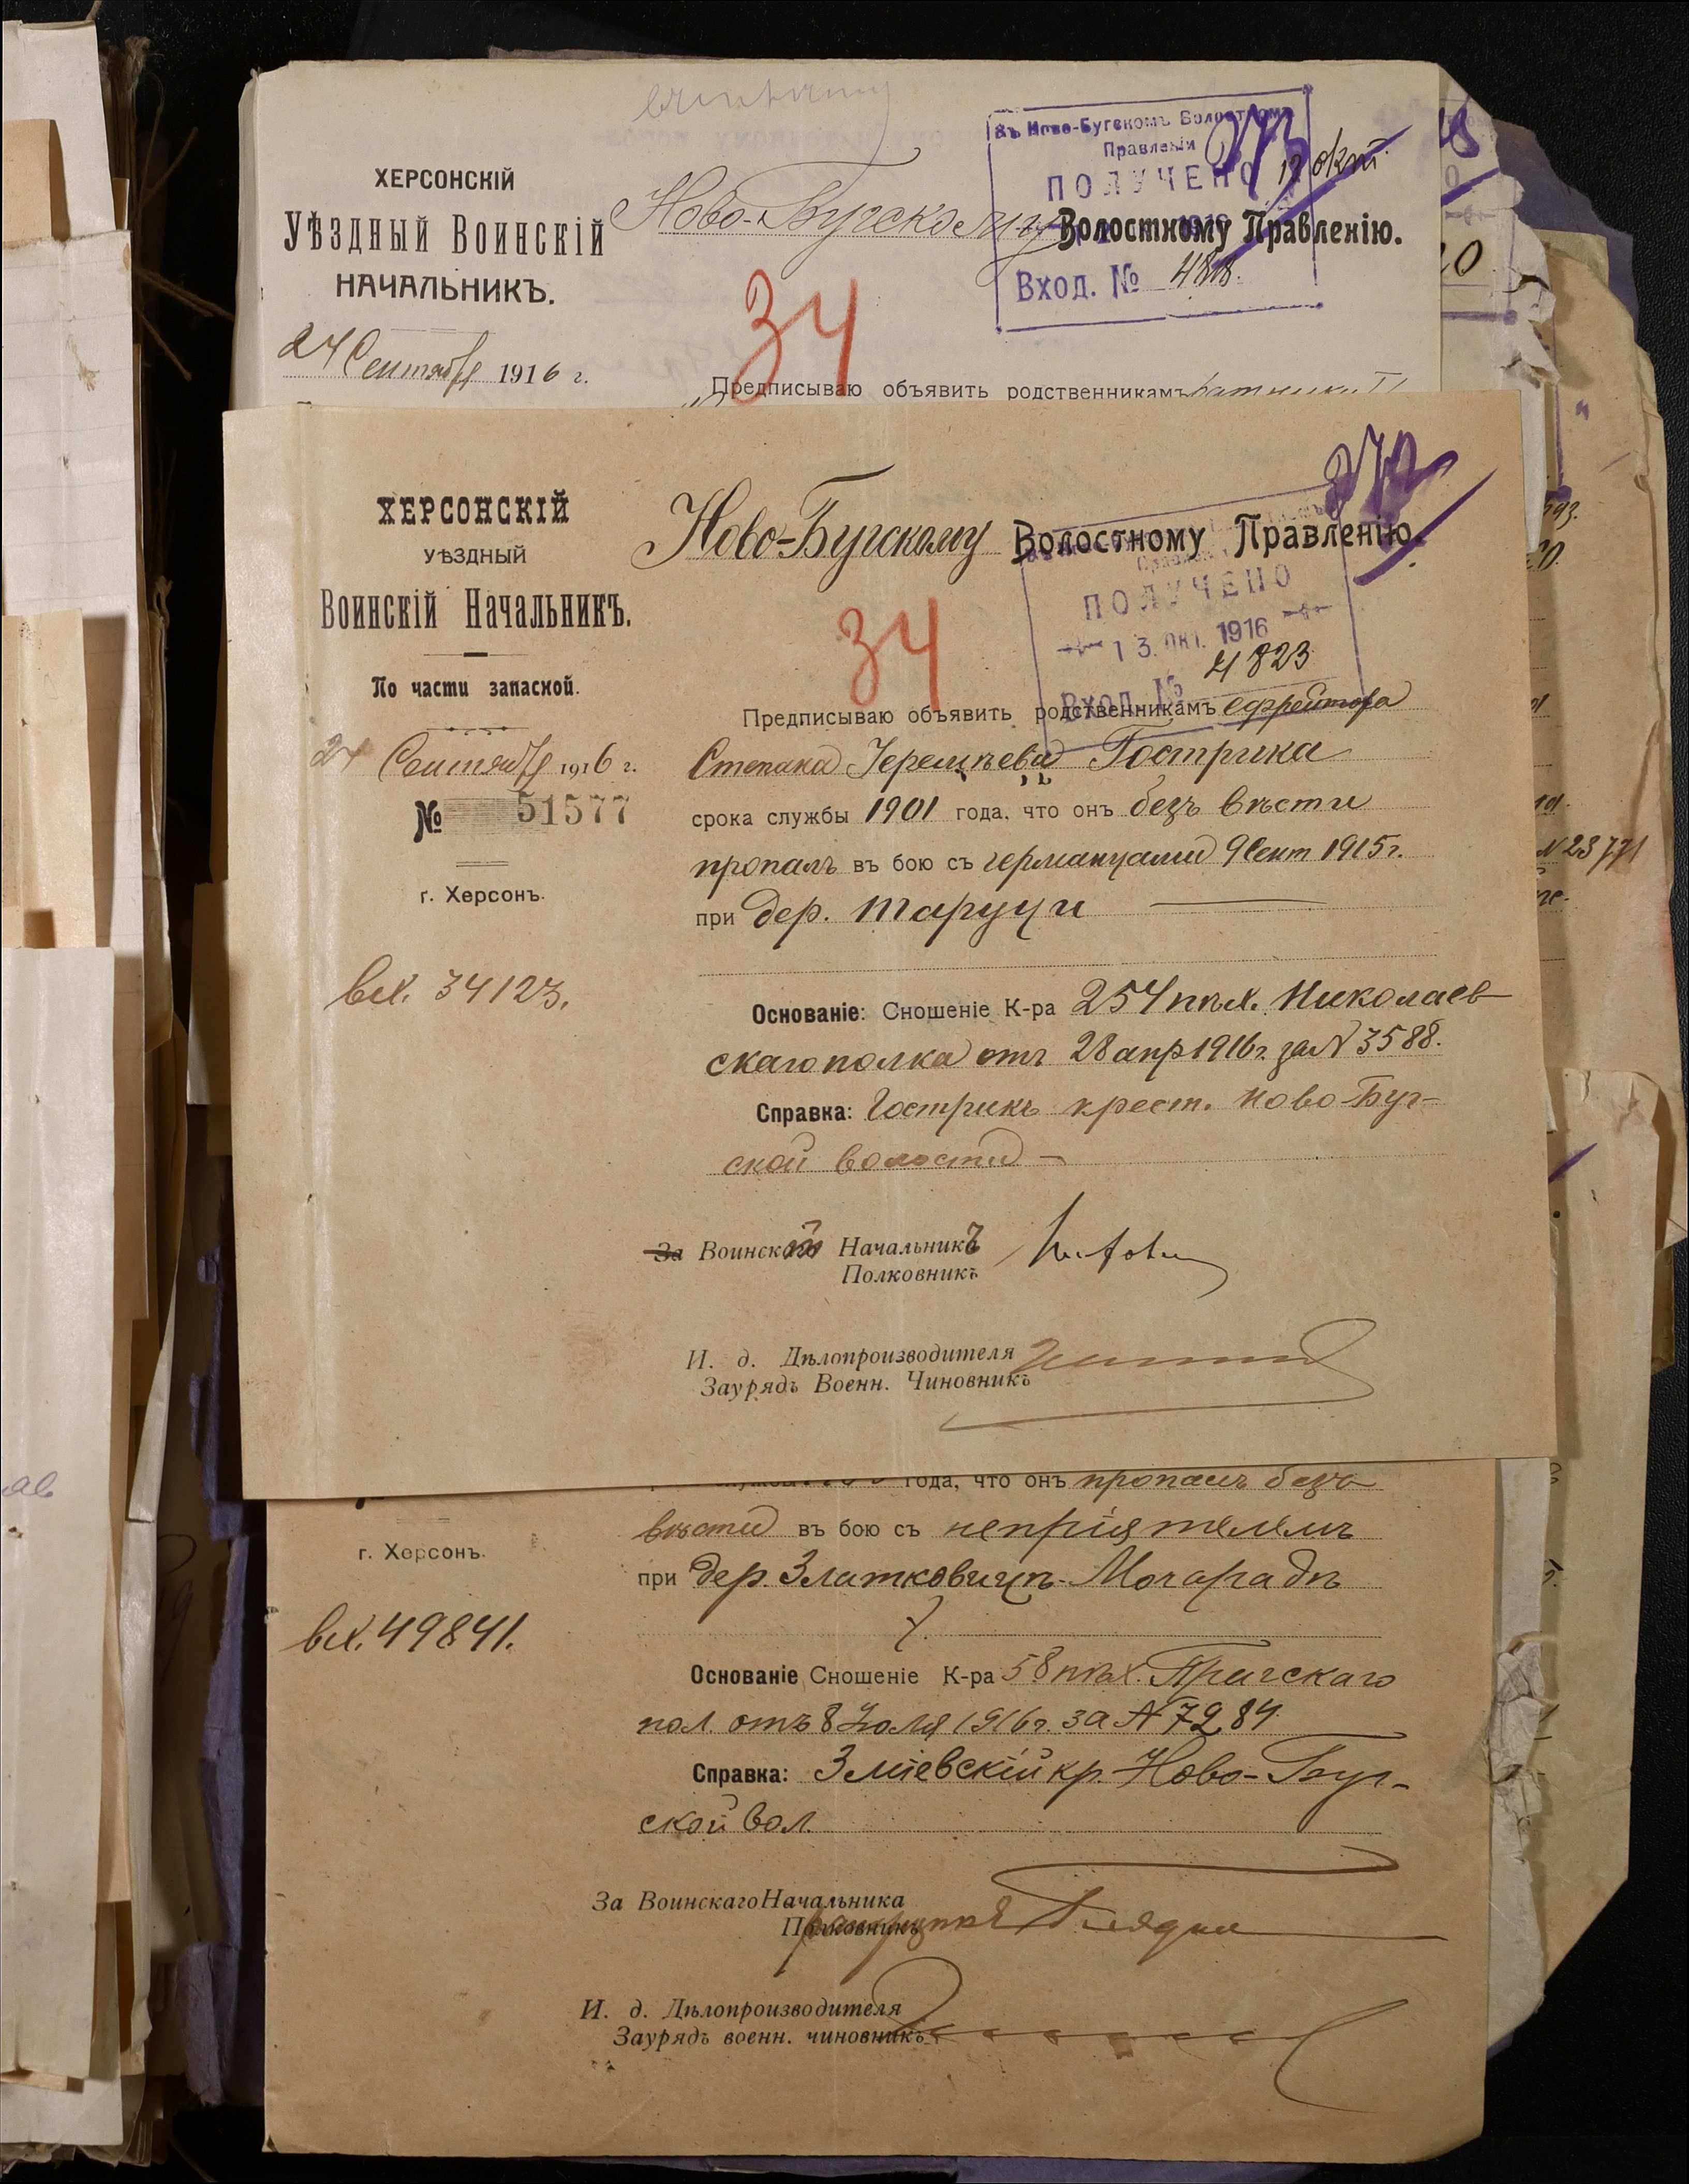 въ Ново-Бугскомъ Волостномъ
Правленіи
ПОЛУЧЕНО
12 окт.
1916
Вход. № 4818.
ХЕРСОНСКІЙ
УѢЗДНЫЙ ВОИНСКІЙ
НАЧАЛЬНИКЪ.
Ново-Бугскому Волостному Правленію.
34
24 Сентября 1916 г.
Предписываю объявить родственникамъ ратника
372
ХЕРСОНСКІЙ
УѢЗДНЫЙ
Воинскій Начальникъ.
По части запасной.
24 Сентября 1916 г.
№ 51577
г. Херсонъ.
вх. 34123.
Ново-Бугскому Волостному Правленію.
ПОЛУЧЕНО
13. ОКТ. 1916
Вход. № 4823
34
Предписываю объявить родственникамъ ефрейтора
Степана Черемѣева Гострика
срока службы 1901 года, что онъ безъ вѣсти
пропалъ въ бою съ германцами 9 Сент 1915 г.
при дер. Таруци
Основаніе: Сношеніе К-ра 254 пѣх. Николаев-
скаго полка отъ 28 апр 1916 г. за № 3588.
Справка: Гострикъ крест. Ново-Буг-
ской волости
За Воинскій Начальникъ
Полковникъ
И. д. Дѣлопроизводителя
Заурядъ Военн. Чиновникъ
года, что онъ пропалъ безъ
вѣсти въ бою съ непріятелемъ
при дер. Златковицѣ-Могарадѣ
г. Херсонъ.
вх. 49841.
Основаніе Сношеніе К-ра 58 пѣх. Прагскаго
пол. отъ 8 Іюля 1916 г. за № 7284
Справка: Зміевскій кр. Ново-Буг-
ской вол.
За Воинскаго Начальника
Полковникъ
И. д. Дѣлопроизводителя
Заурядъ военн. чиновникъ
№ 23771